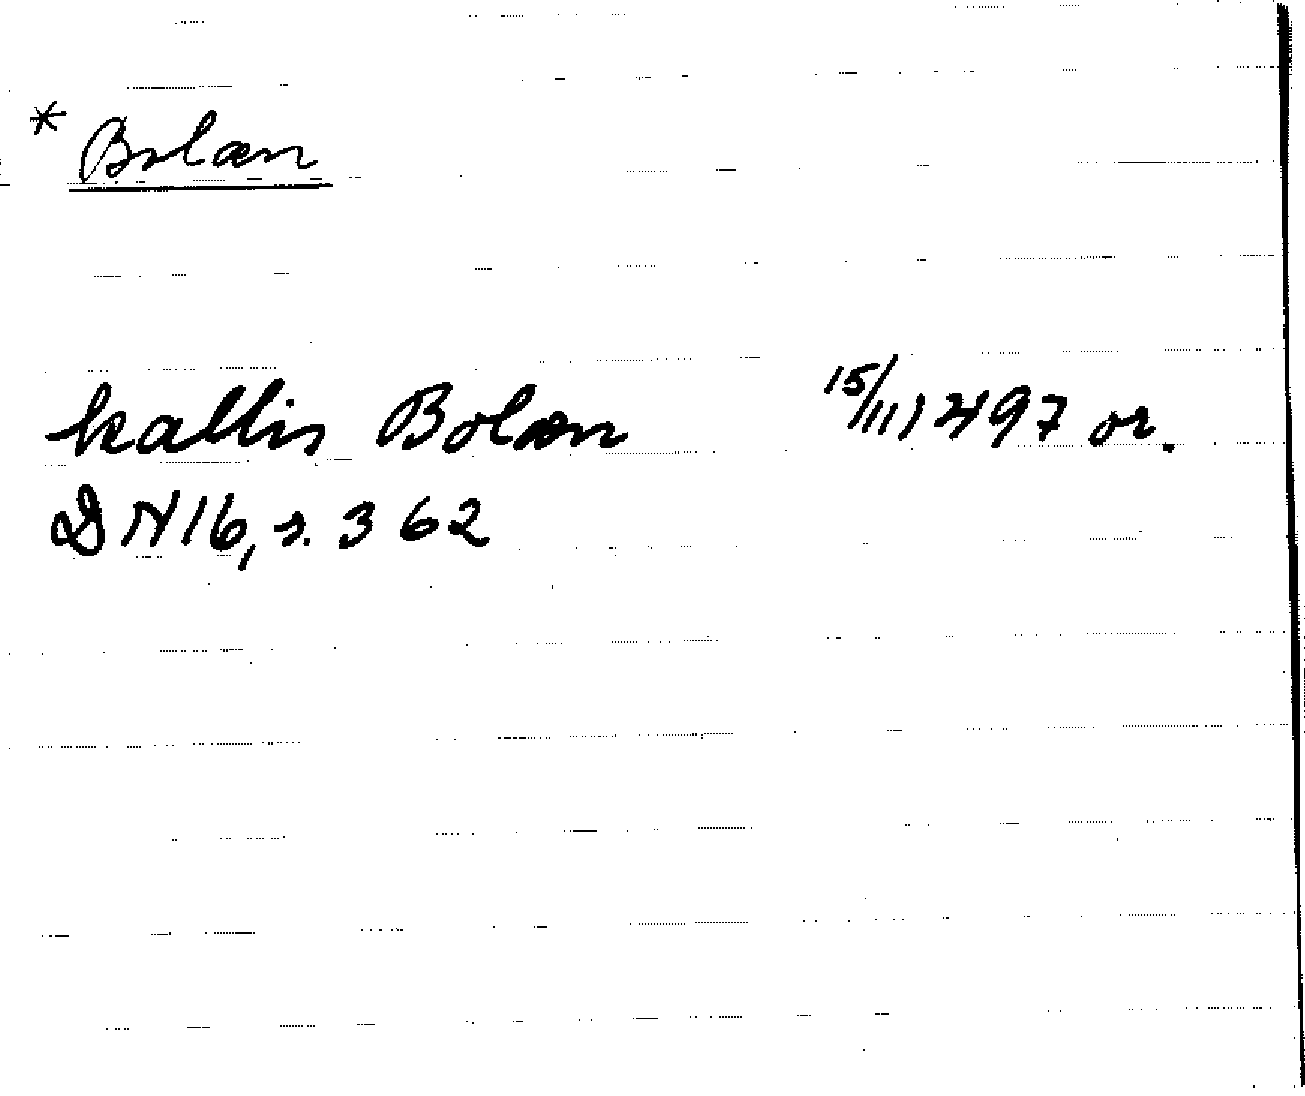 * Bolæn
kallis Bolæn 15/111 1497 or.
DN16, s. 362